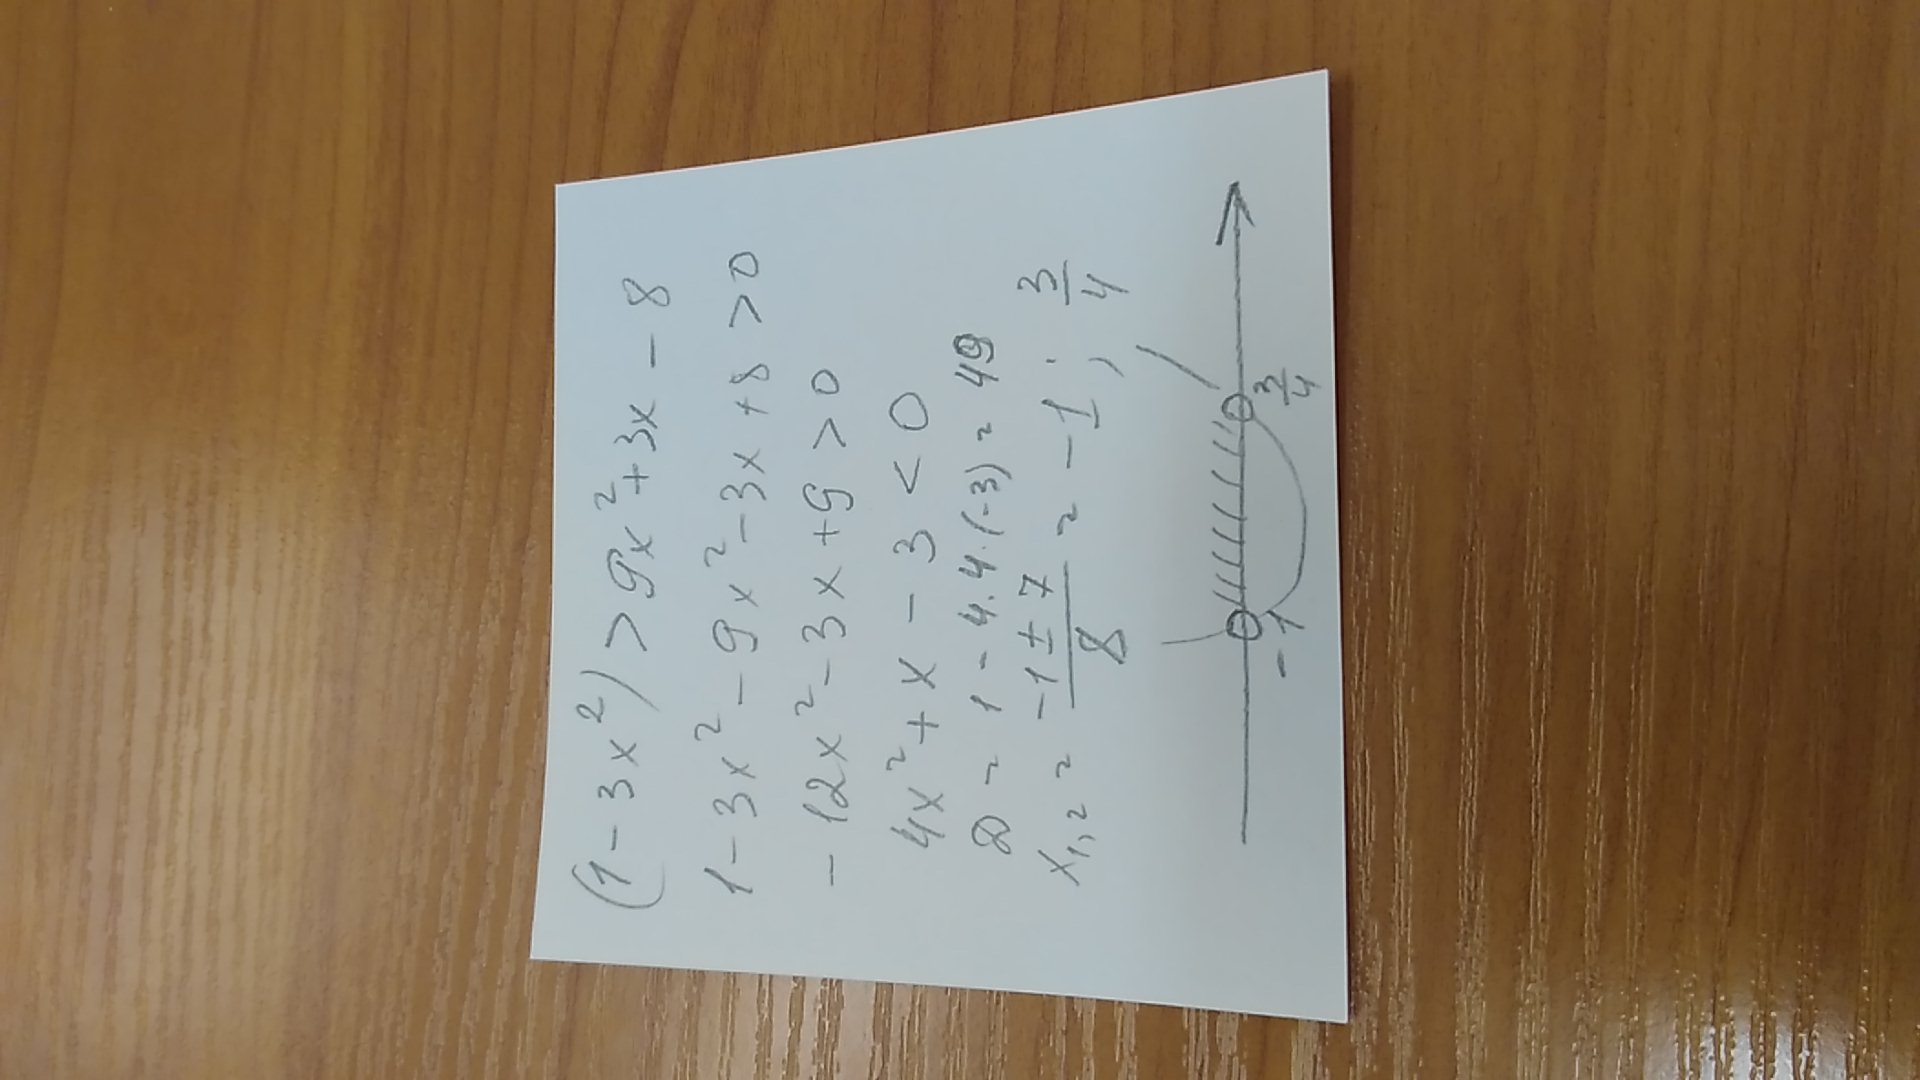 (1 - 3x²) > 9x² + 3x - 8
1 - 3x² - 9x² - 3x + 8 > 0
- 12x² - 3x + 9 > 0
4x² + x - 3 < 0
D = 1 - 4·4·(-3) = 49
x₁,₂ = (-1 ± 7)/8 = -1 ; 3/4
-1 3/4